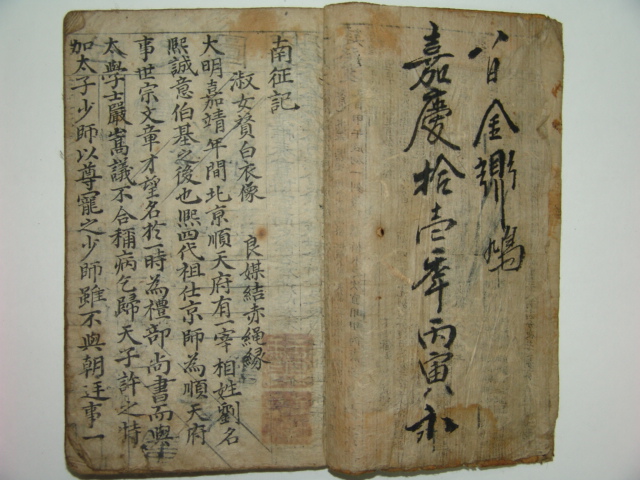 嘉慶拾壹年丙寅
南征記
淑女贊白衣像 良媒結赤繩緣
大明嘉靖年間北京順天府有一宰相姓劉名
熙誠意伯基之後也熙四代祖仕京師為順天府
事世宗文章才望名於一時為禮部尚書而與
太學士嚴嵩議不合稱病乞歸天子許之特
加太子少師以尊寵之少師雖不與朝廷事一